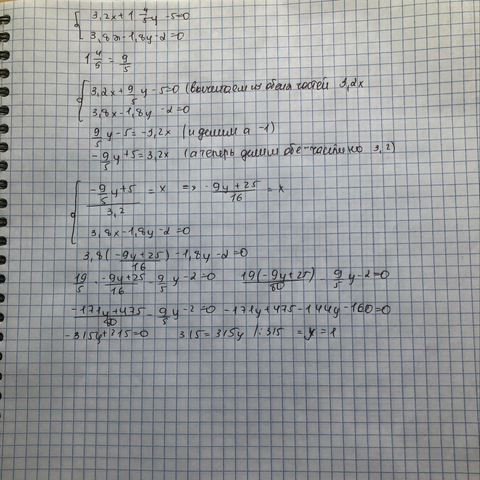 3,2x+1 4/5 y -5=0
3,8x-1,8y-2=0
1 4/5 = 9/5
3,2x+ 9/5 y -5=0 (вычитаем из обеих частей 3,2x
3,8x-1,8y -2=0
9/5 y-5=-3,2x (и делим а -1)
-9/5 y+5=3,2x (а теперь делим обе части на 3,2)
(-9/5 y+5)/3,2 = x => (-9y+25)/16 = x
3,8x-1,8y-2=0
3,8(-9y+25)/16 -1,8y-2=0
19/5 · (-9y+25)/16 - 9/5 y-2=0 19(-9y+25)/80 9/5 y-2=0
(-171y+475)/80 - 9/5 y-2=0 -171y+475-144y-160=0
-315y+315=0 315=315y /:315 = y=1